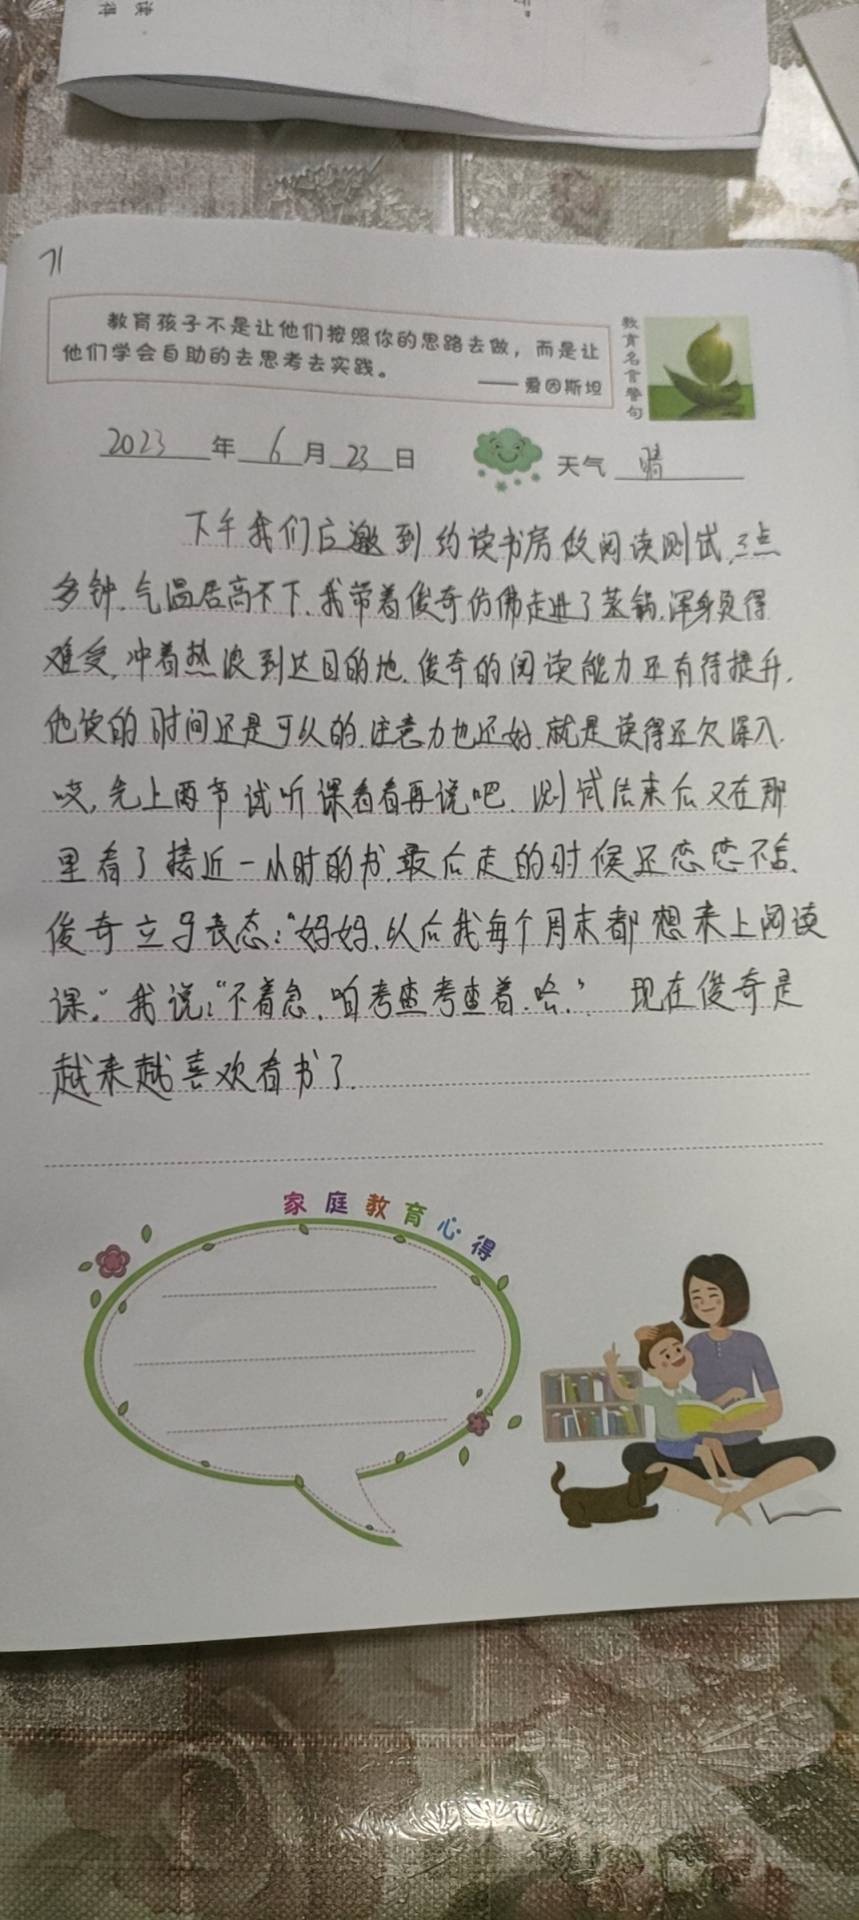 读
得
71
教育孩子不是让他们按照你的思路去做，而是让
他们学会自助的去思考去实践。
——爱因斯坦
教育名言警句
2023年6月23日 天气 晴
下午我们应邀到约读书房做阅读测试,三点
多钟,气温居高不下,我带着俊奇仿佛走进了蒸锅,浑身觉得
难受,冲着热浪到达目的地,俊奇的阅读能力还有待提升,
他读的时间还是可以的,注意力也还好,就是读得还欠深入.
哎,先上两节试听课看看再说吧.测试结束后又在那
里看了接近一小时的书,最后走的时候还恋恋不舍.
俊奇立马表态:“妈妈,以后我每个周末都想来上阅读
课。”我说:“不着急,咱考查考查着,哈.”现在俊奇是
越来越喜欢看书了.
家庭教育心得